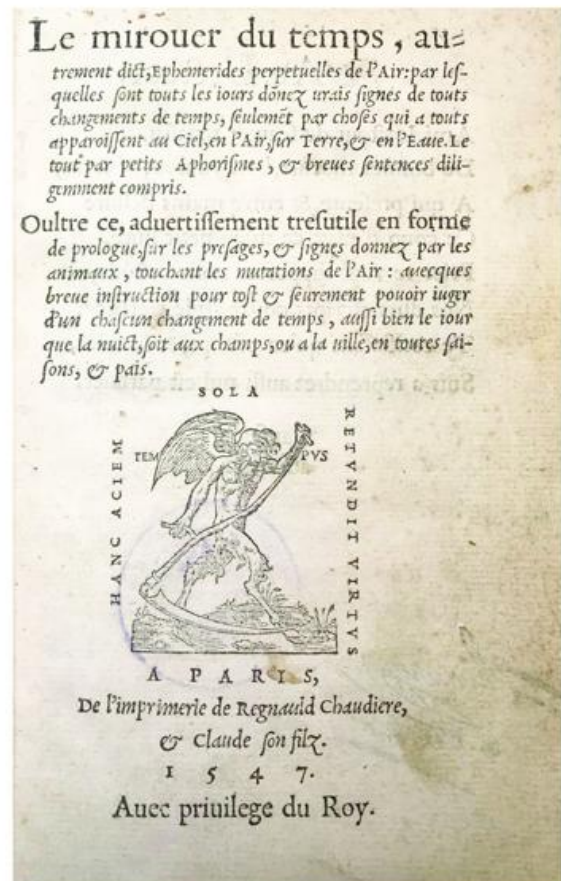 Le mirouer du temps, au=
trement dict, Ephemerides perpetuelles de l'Air: par les-
quelles sont touts les iours dõnez urais signes de touts
changements de temps, seulemẽt par choses qui a touts
apparoissent au Ciel, en l'Air, sur Terre, & en l'Eaue. Le
tout par petits Aphorismes, & breues sentences dili-
gemment compris.
Oultre ce, aduertissement tresutile en forme
de prologue, sur les presages, & signes donnez par les
animaux, touchant les mutations de l'Air: auecques
breue instruction pour tost & seurement pouoir iuger
d'un chascun changement de temps, aussi bien le iour
que la nuict, soit aux champs, ou a la uille, en toutes sai-
sons, & pais.
HANC ACIEM
SOLA
RETVNDIT VIRTVS
TEM PVS
A PARIS,
De l'imprimerie de Regnauld Chaudiere,
& Claude son filz.
1547.
Auec priuilege du Roy.